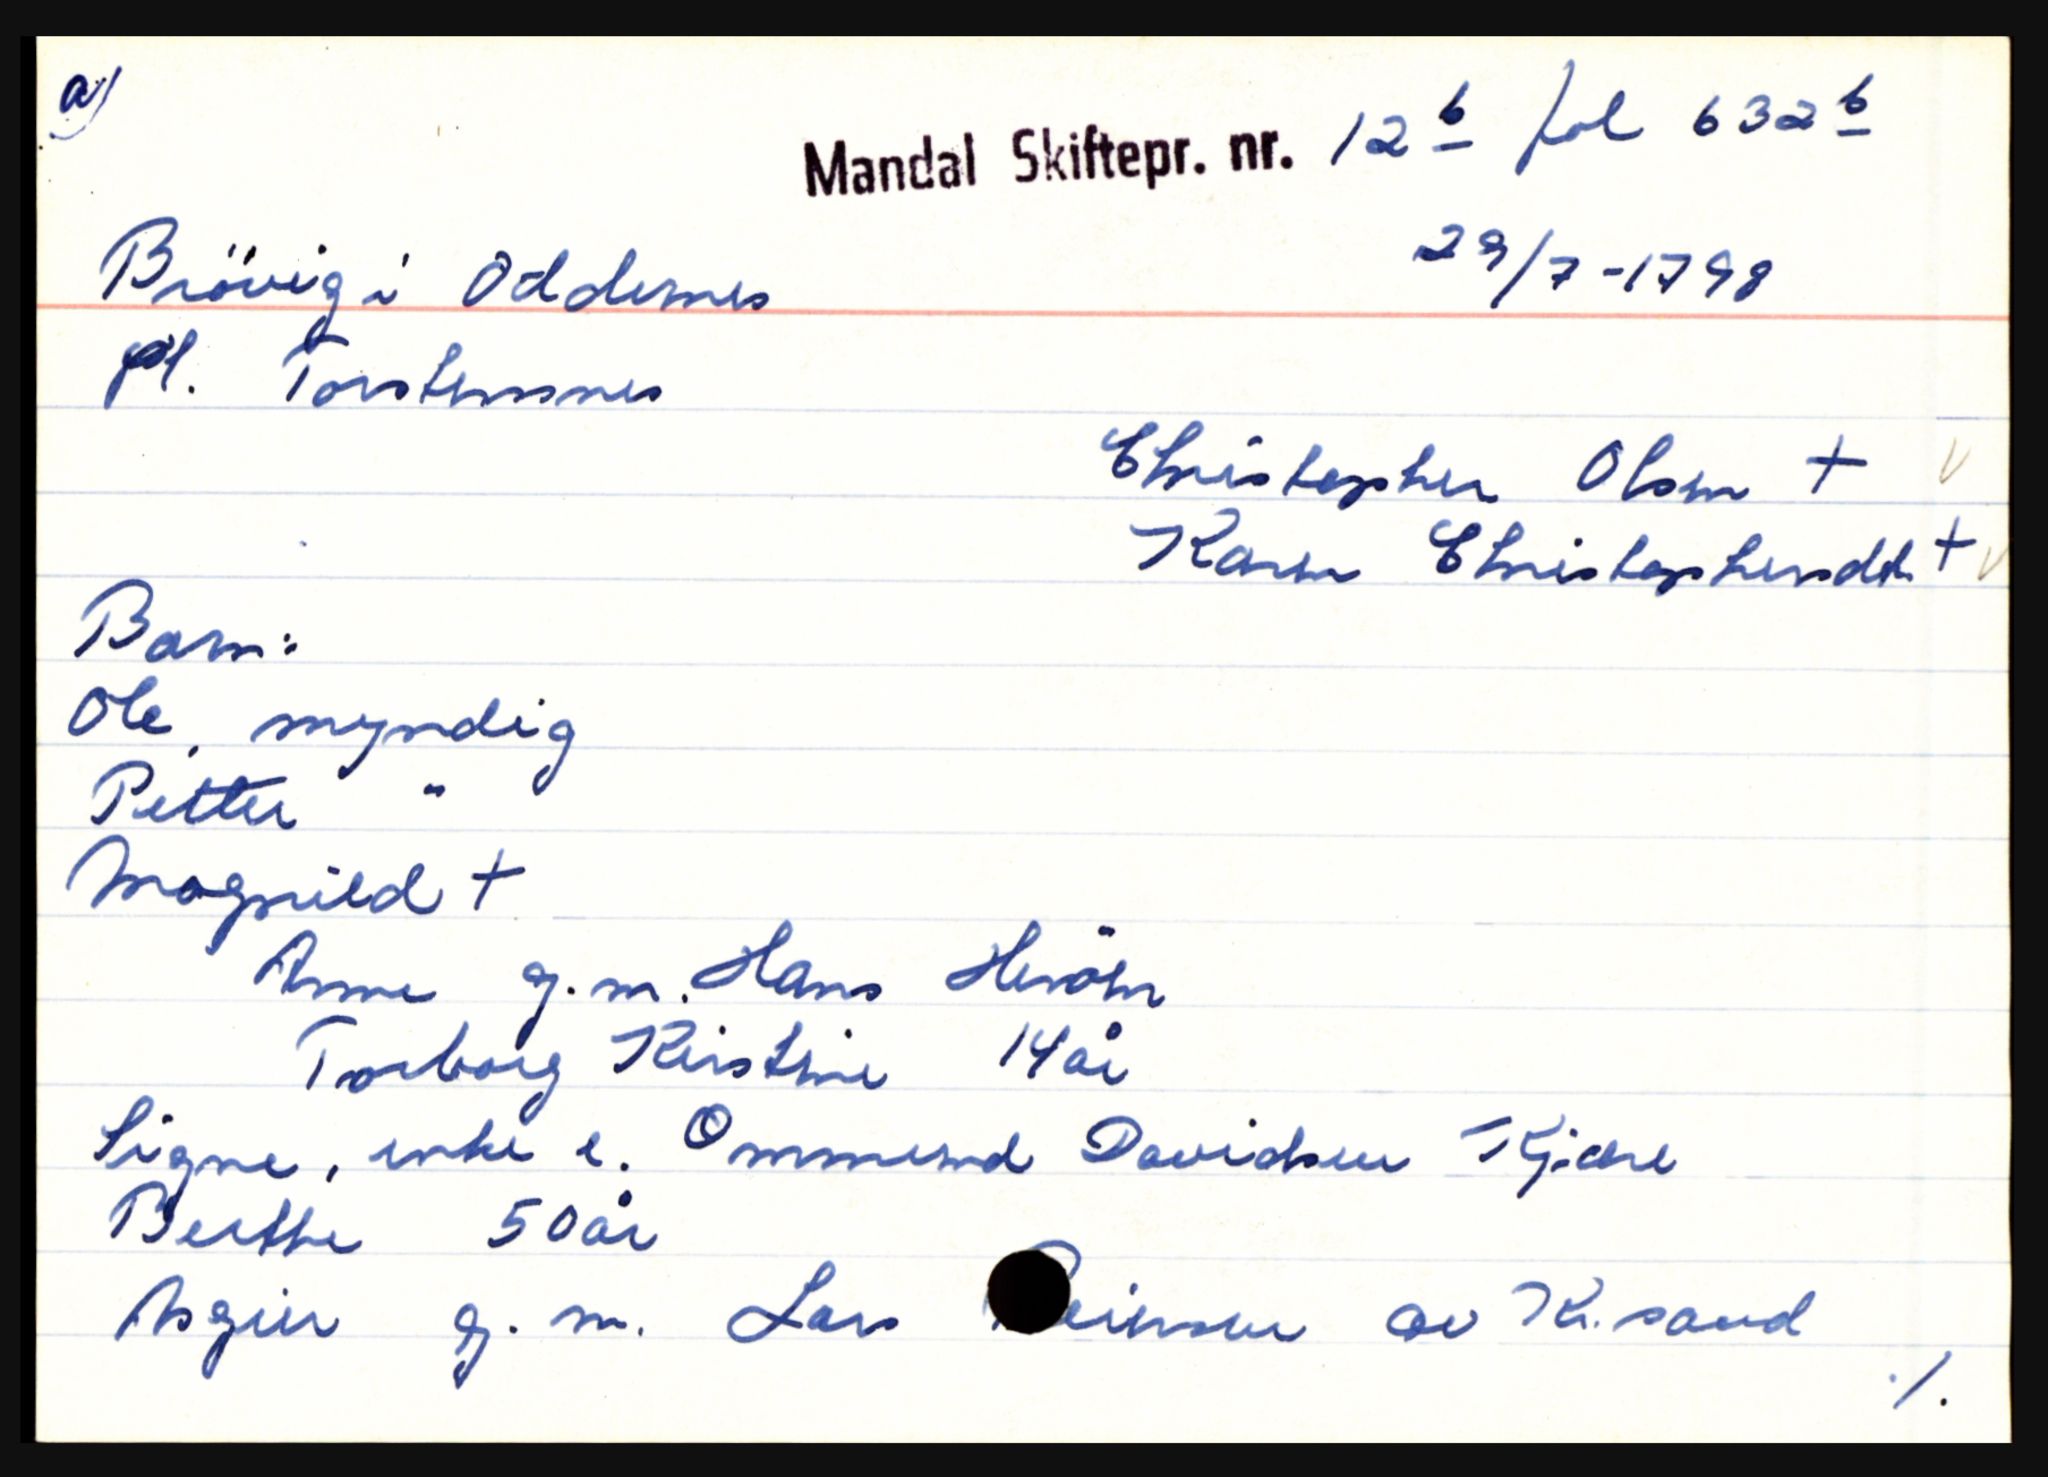 a)
Mandal Skiftepr. nr. 12 b fol 632 b
Brövig i Oddernes
29/7-1798
pl. Torstensnes
Christopher Olsen +
Karen Christophersdt. +
Barn:
Ole, myndig
Petter "
Magnild +
Anne g.m. Hans Heröen
Torborg Kirstine 14 år
Signe, enke e. Ommund Davidsen Kjære
Berthe 50 år
Asgier g.m. Lars av Kr.sand
./.